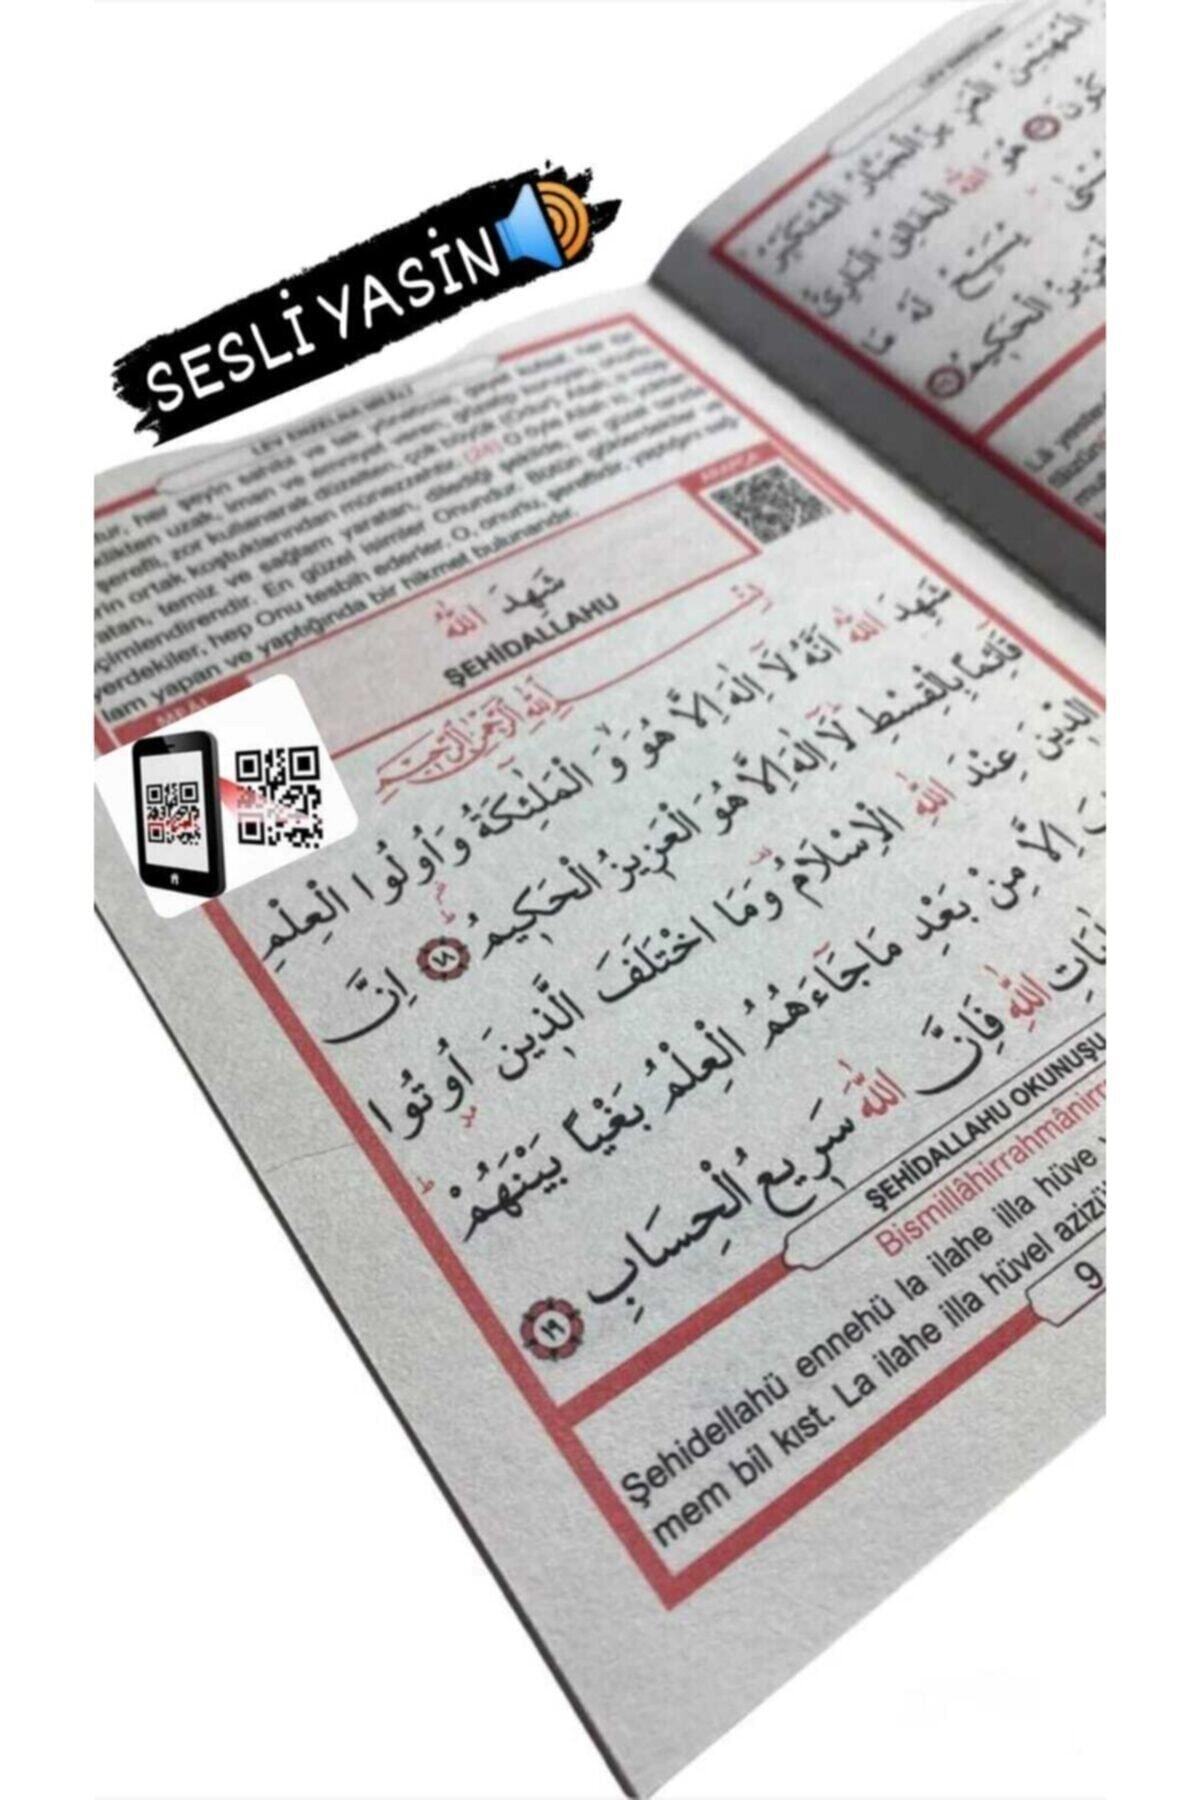 SESLİ YASİN
LEV ENZELNA MEALİ
tur, her şeyin sahibi ve tek
uzak, iman ve emniyet veren, gözetip koruyan,
şerefli, zor kullanarak düzelten, çok büyük (Odur). Allah,
rin ortak koştuklarından münezzehtir. (24) O öyle Allah ki,
atan, temiz ve sağlam yaratan, dilediği şekilde, en güzel
çimlendirendir. En güzel isimler Onundur. Bütün göklerdekiler ve
yerdekiler, hep Onu tesbih ederler. O, onurlu, şereflidir, yaptığını sağ-
lam yapan ve yaptığında bir hikmet bulunandır.
MEAL
ARAPÇA
شَهِدَ اللّٰهُ
ŞEHİDALLAHU
بِسْــــــمِ اللّٰهِ الرَّحْمٰنِ الرَّحِيمِ
شَهِدَ اللّٰهُ اَنَّهُ لَٓا اِلٰهَ اِلَّا هُوَۙ وَ الْمَلٰٓئِكَةُ وَ اُو۬لُوا الْعِلْمِ
قَٓائِماً بِالْقِسْطِۜ لَٓا اِلٰهَ اِلَّا هُوَ الْعَزِيزُ الْحَكِيمُۜ ﴿١٨﴾ اِنَّ
الدِّينَ عِنْدَ اللّٰهِ الْاِسْلَامُ۠ وَمَا اخْتَلَفَ الَّذِينَ اُو۫تُوا
اِلَّا مِنْ بَعْدِ مَا جَٓاءَهُمُ الْعِلْمُ بَغْياً بَيْنَهُمْۜ
اللّٰهِ فَاِنَّ اللّٰهَ سَرِيعُ الْحِسَابِ ﴿١٩﴾
ŞEHİDALLAHU OKUNUŞU
Bismillâhirrahmânirr
Şehidellahü ennehü la ilahe illa hüve v
mem bil kıst. La ilahe illa hüvel azizü
9
الْمُهَيْمِنُ الْعَزِيزُ الْجَبَّارُ الْمُتَكَبِّرُ
هُوَ اللّٰهُ الْخَالِقُ الْبَارِئُ
يُسَبِّحُ لَهُ
الْحَكِيمُ